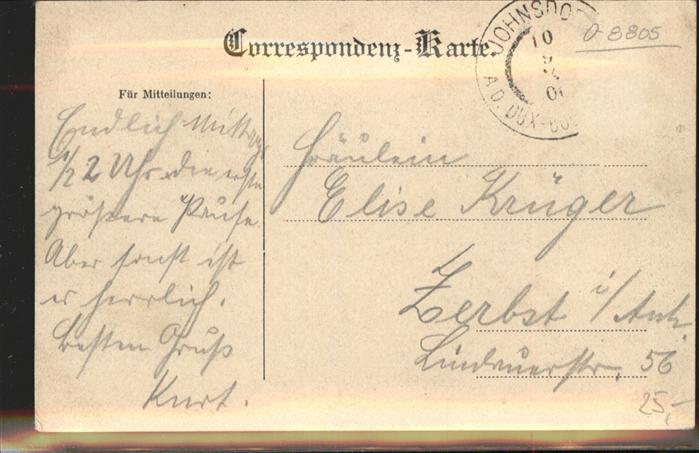 Correspondenz-Karte.
JOHNSDO
10
A.D. DUX-BO
D-8805
Für Mitteilungen:
Endlich Mittags
1/2 2 Uhr die erste
grössere Pause.
Aber sonst ist
es herrlich.
Besten Gruß
Kurt.
Fräulein
Elise Krüger
Zerbst i/Anh.
Lindauerstr. 56
25,-